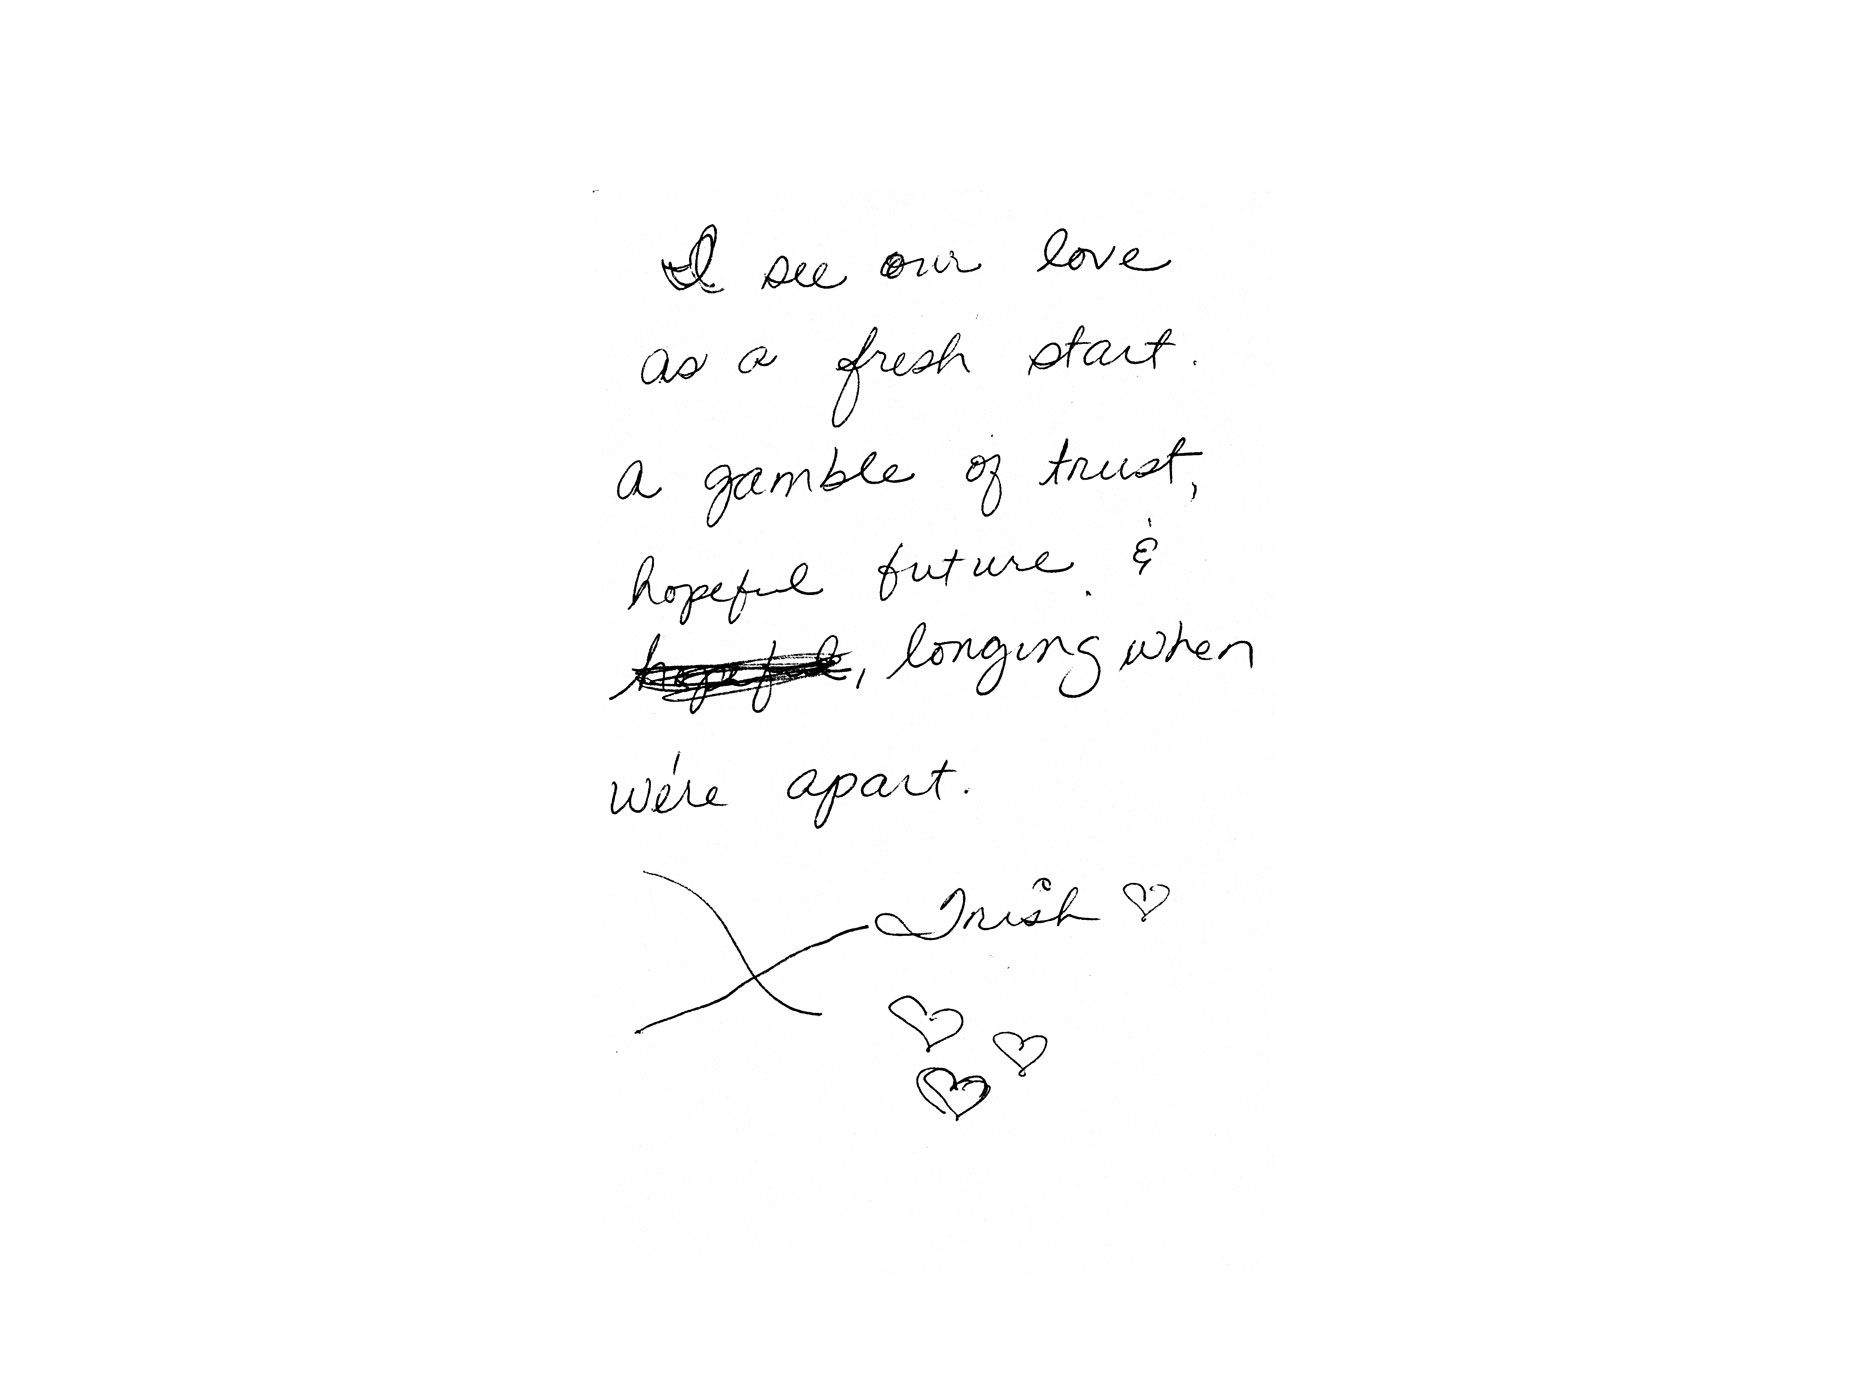 I see our love
as a fresh start.
a gamble of trust,
hopeful future. &
hopeful, longing when
we're apart.
Trish